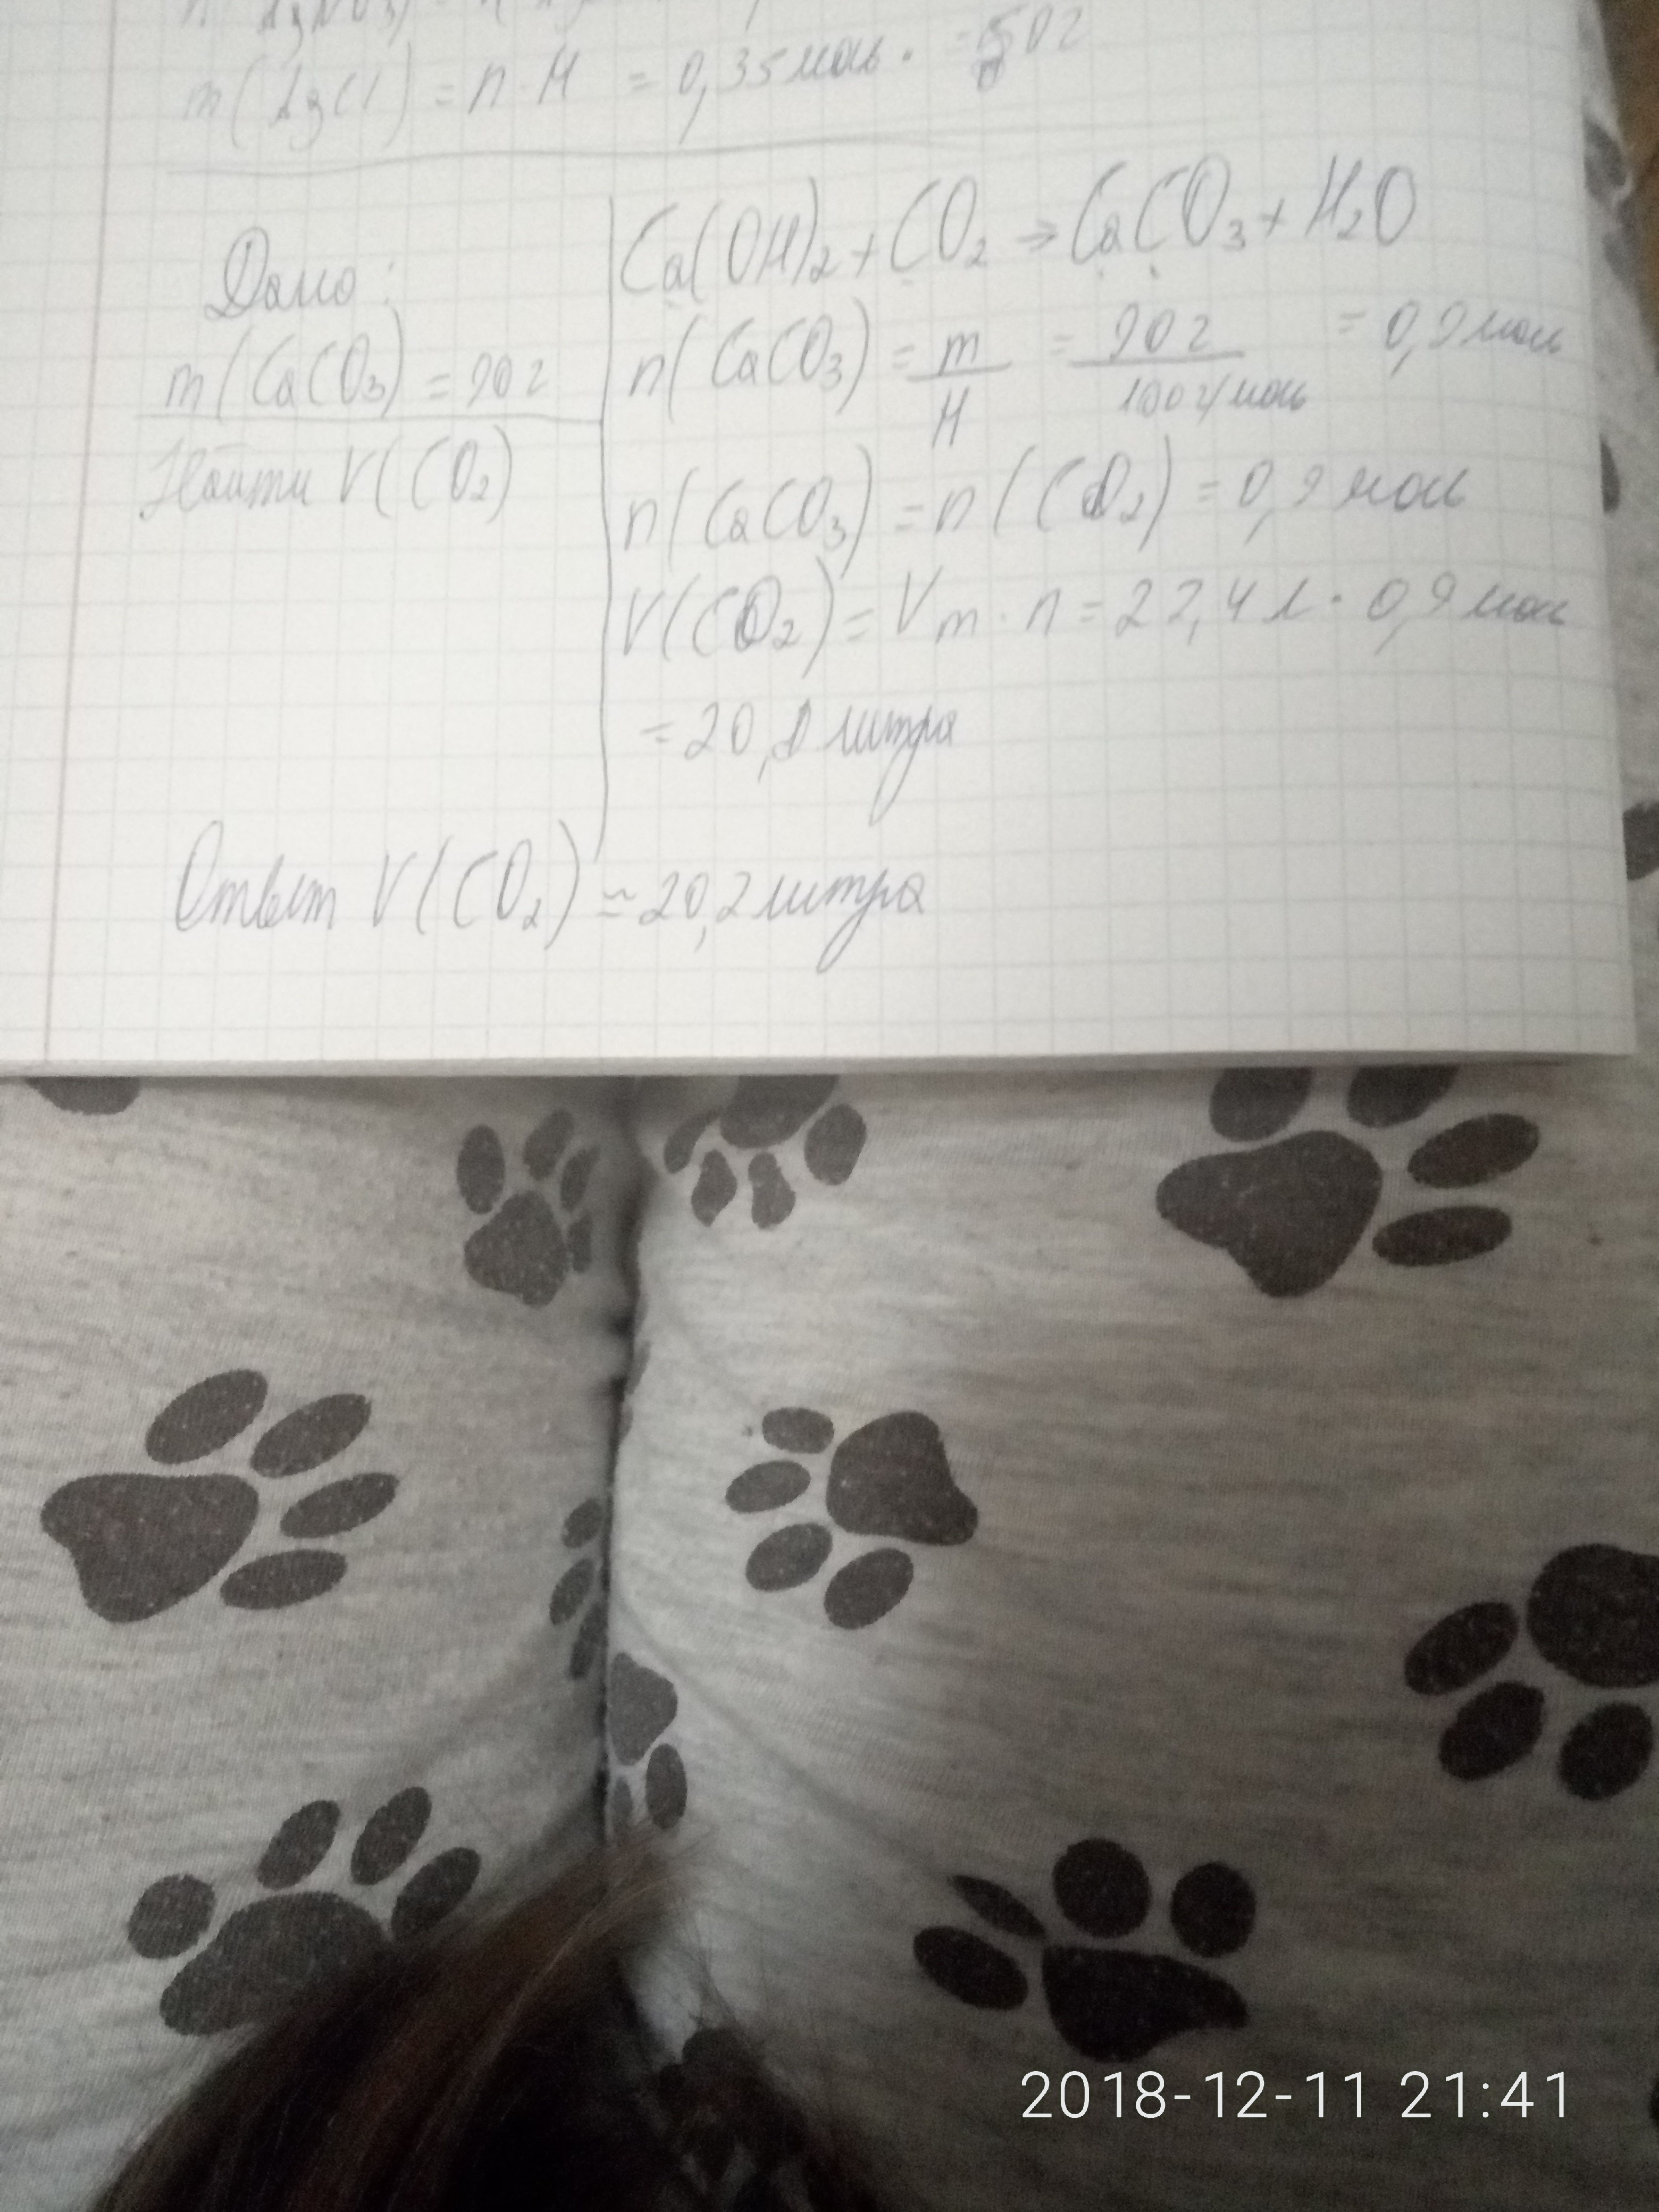 m(AgCl) = n · M = 0,35 моль · = 50 г
Дано:
m(CaCO3) = 90 г
Найти V(CO2)
Ca(OH)2 + CO2 → CaCO3 + H2O
n(CaCO3) = m/M = 90 г/100 г/моль = 0,9 моль
n(CaCO3) = n(CO2) = 0,9 моль
V(CO2) = Vm · n = 22,4 л · 0,9 моль
= 20,2 литра
Ответ V(CO2) = 20,2 литра
2018-12-11 21:41